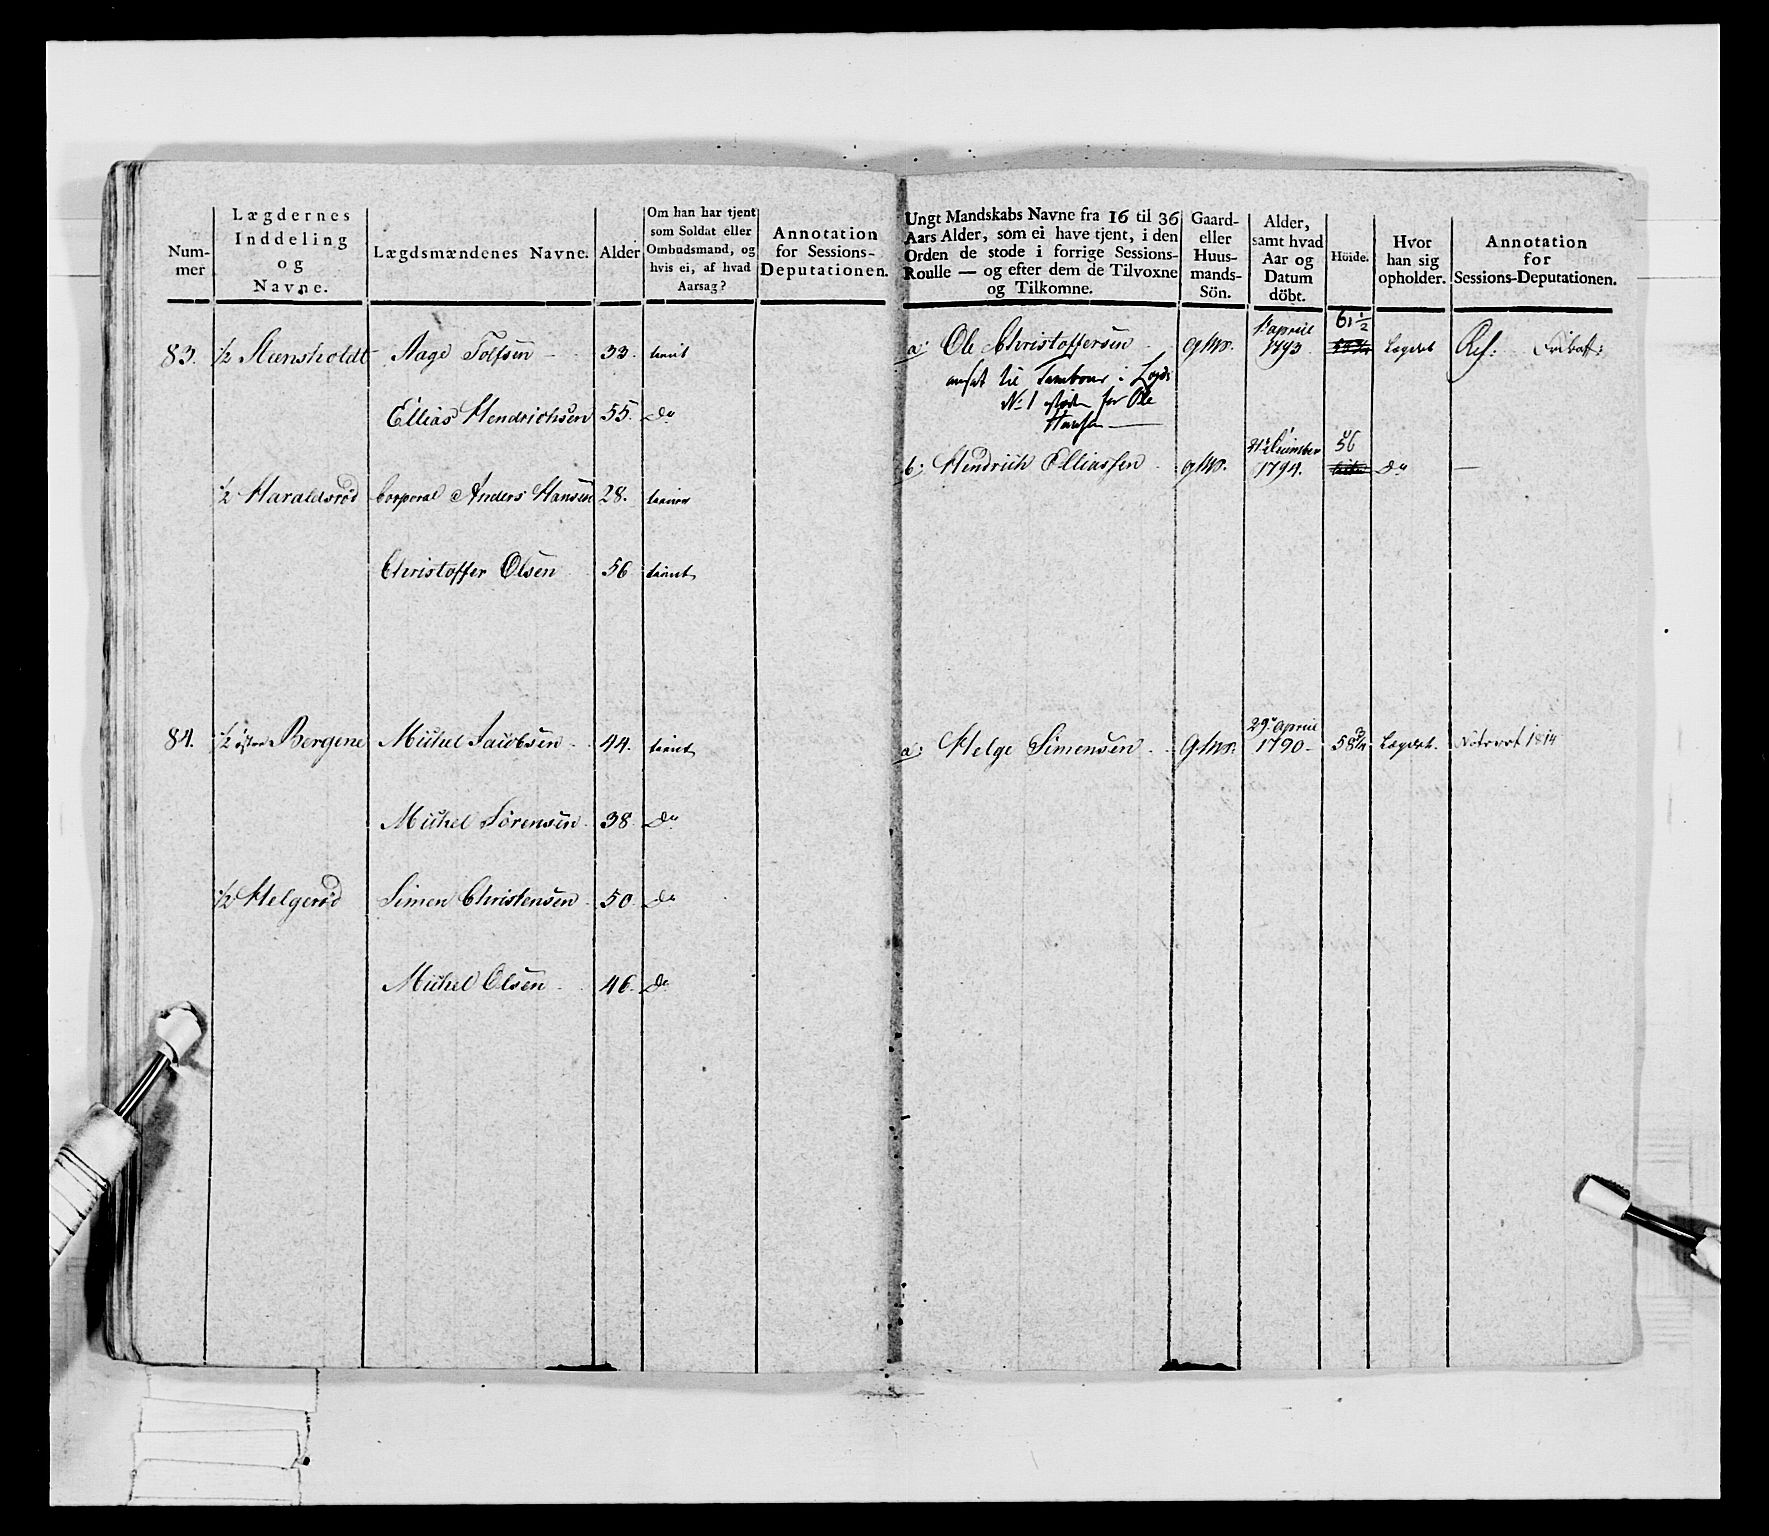 Num-
mer
Lægdernes
Inddeling
og
Navne.
Lægdsmændenes Navne.
Alder
Om han har tjent
som Soldat eller
Ombudsmand, og
hvis ei, af hvad
Aarsag?
Annotation
for Sessions-
Deputationen.
83. 1/2 Steensholdt Aage Tolfsen 33. tient
Ellias Hendrichsen 55. Do
1/2 Haraldsrød Corporal Anders Hansen 28.
Christoffer Olsen 56 tient
84. 1/2 østre Bergene Michel Jacobsen 44. tient
Michel Sørensen 38. Do
1/2 Helgerød Simen Christensen 50. Do
Michel Olsen 46. Do
Ungt Mandskabs Navne fra 16 til 36
Aars Alder, som ei have tjent, i den
Orden de stode i forrige Sessions-
Roulle — og efter dem de Tilvoxne
og Tilkomne.
Gaard-
eller
Huus-
mands-
Sön.
Alder,
samt hvad
Aar og
Datum
döbt.
Höide.
Hvor
han sig
opholder.
Annotation
for
Sessions-Deputationen.
1 april 61 1/2
a: Ole Christoffersen gms. 1793 Lægdet Ref:
ansat til Tambour i Lægds
No 1 istæden for Ole
Hansen
December 56
b: Hendrich Elliassen gms. 1794. Do —
29 april
a: Helge Simensen gms. 1790 58 3/4 Lægdet. 1814